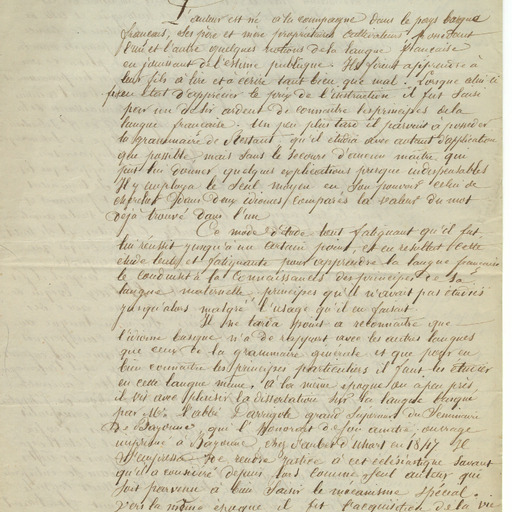 L'auteur est né à la campagne dans le pays basque
français, ses père et mere propriétaires cultivateurs possedant
l'un et l'autre quelques notions de la langue française
en jouissant de l'estime publique. Ils firent apprendre à
leur fils à lire et à écrire tant bien que mal. Lorsque celui ci
fut en état d'apprécier le prix de l'instruction il fut saisi
par un desir ardent de connoitre les principes de la
langue française. Un peu plus tard il parvint à posséder
la grammaire de Restaut, qu'il étudia avec autant d'application
que possible, mais sans le secours d'aucun maitre, qui
put lui donner quelques explications presque indispensables
Il y employa le seul moyen en son pouvoir celui de
chercher dans deux idiomes comparés la valeur du mot
déjà trouvé dans l'un
Ce mode d'étude tout fatiguant qu'il fut
lui réussit jusqu'à un certain point, et en resultat cette
étude et fatigante pour apprendre la langue française
le conduisit à la connaissance des principes de sa
langue maternelle, principes qu'il n'avait pas étudiés
jusqu'alors malgré l'usage qu'il en faisait.
Il ne tarda point à reconnaitre que
l'idiome basque n'a de rapport avec les autres langues
que ceux de la grammaire generale et que pour en
bien connaitre les principes particuliers il faut les étudier
en cette langue même. A la même epoque ou a peu près
il vit avec plaisir la dissertation sur la langue basque
par Mr. l'abbé d'arrigote grand Superieur du Seminaire
De Bayonne, qui l'honorat de son amitié, ouvrage
imprimé à Bayonne, chez Duhart en 18
S'empresse de rendre justice à cet éclésiastique savant
qu'il a considéré depuis lors comme seul auteur qui
soit parvenu à bien saisir le mécanisme spécial.
Vers la même epoque il fit l'acquisition de la vie